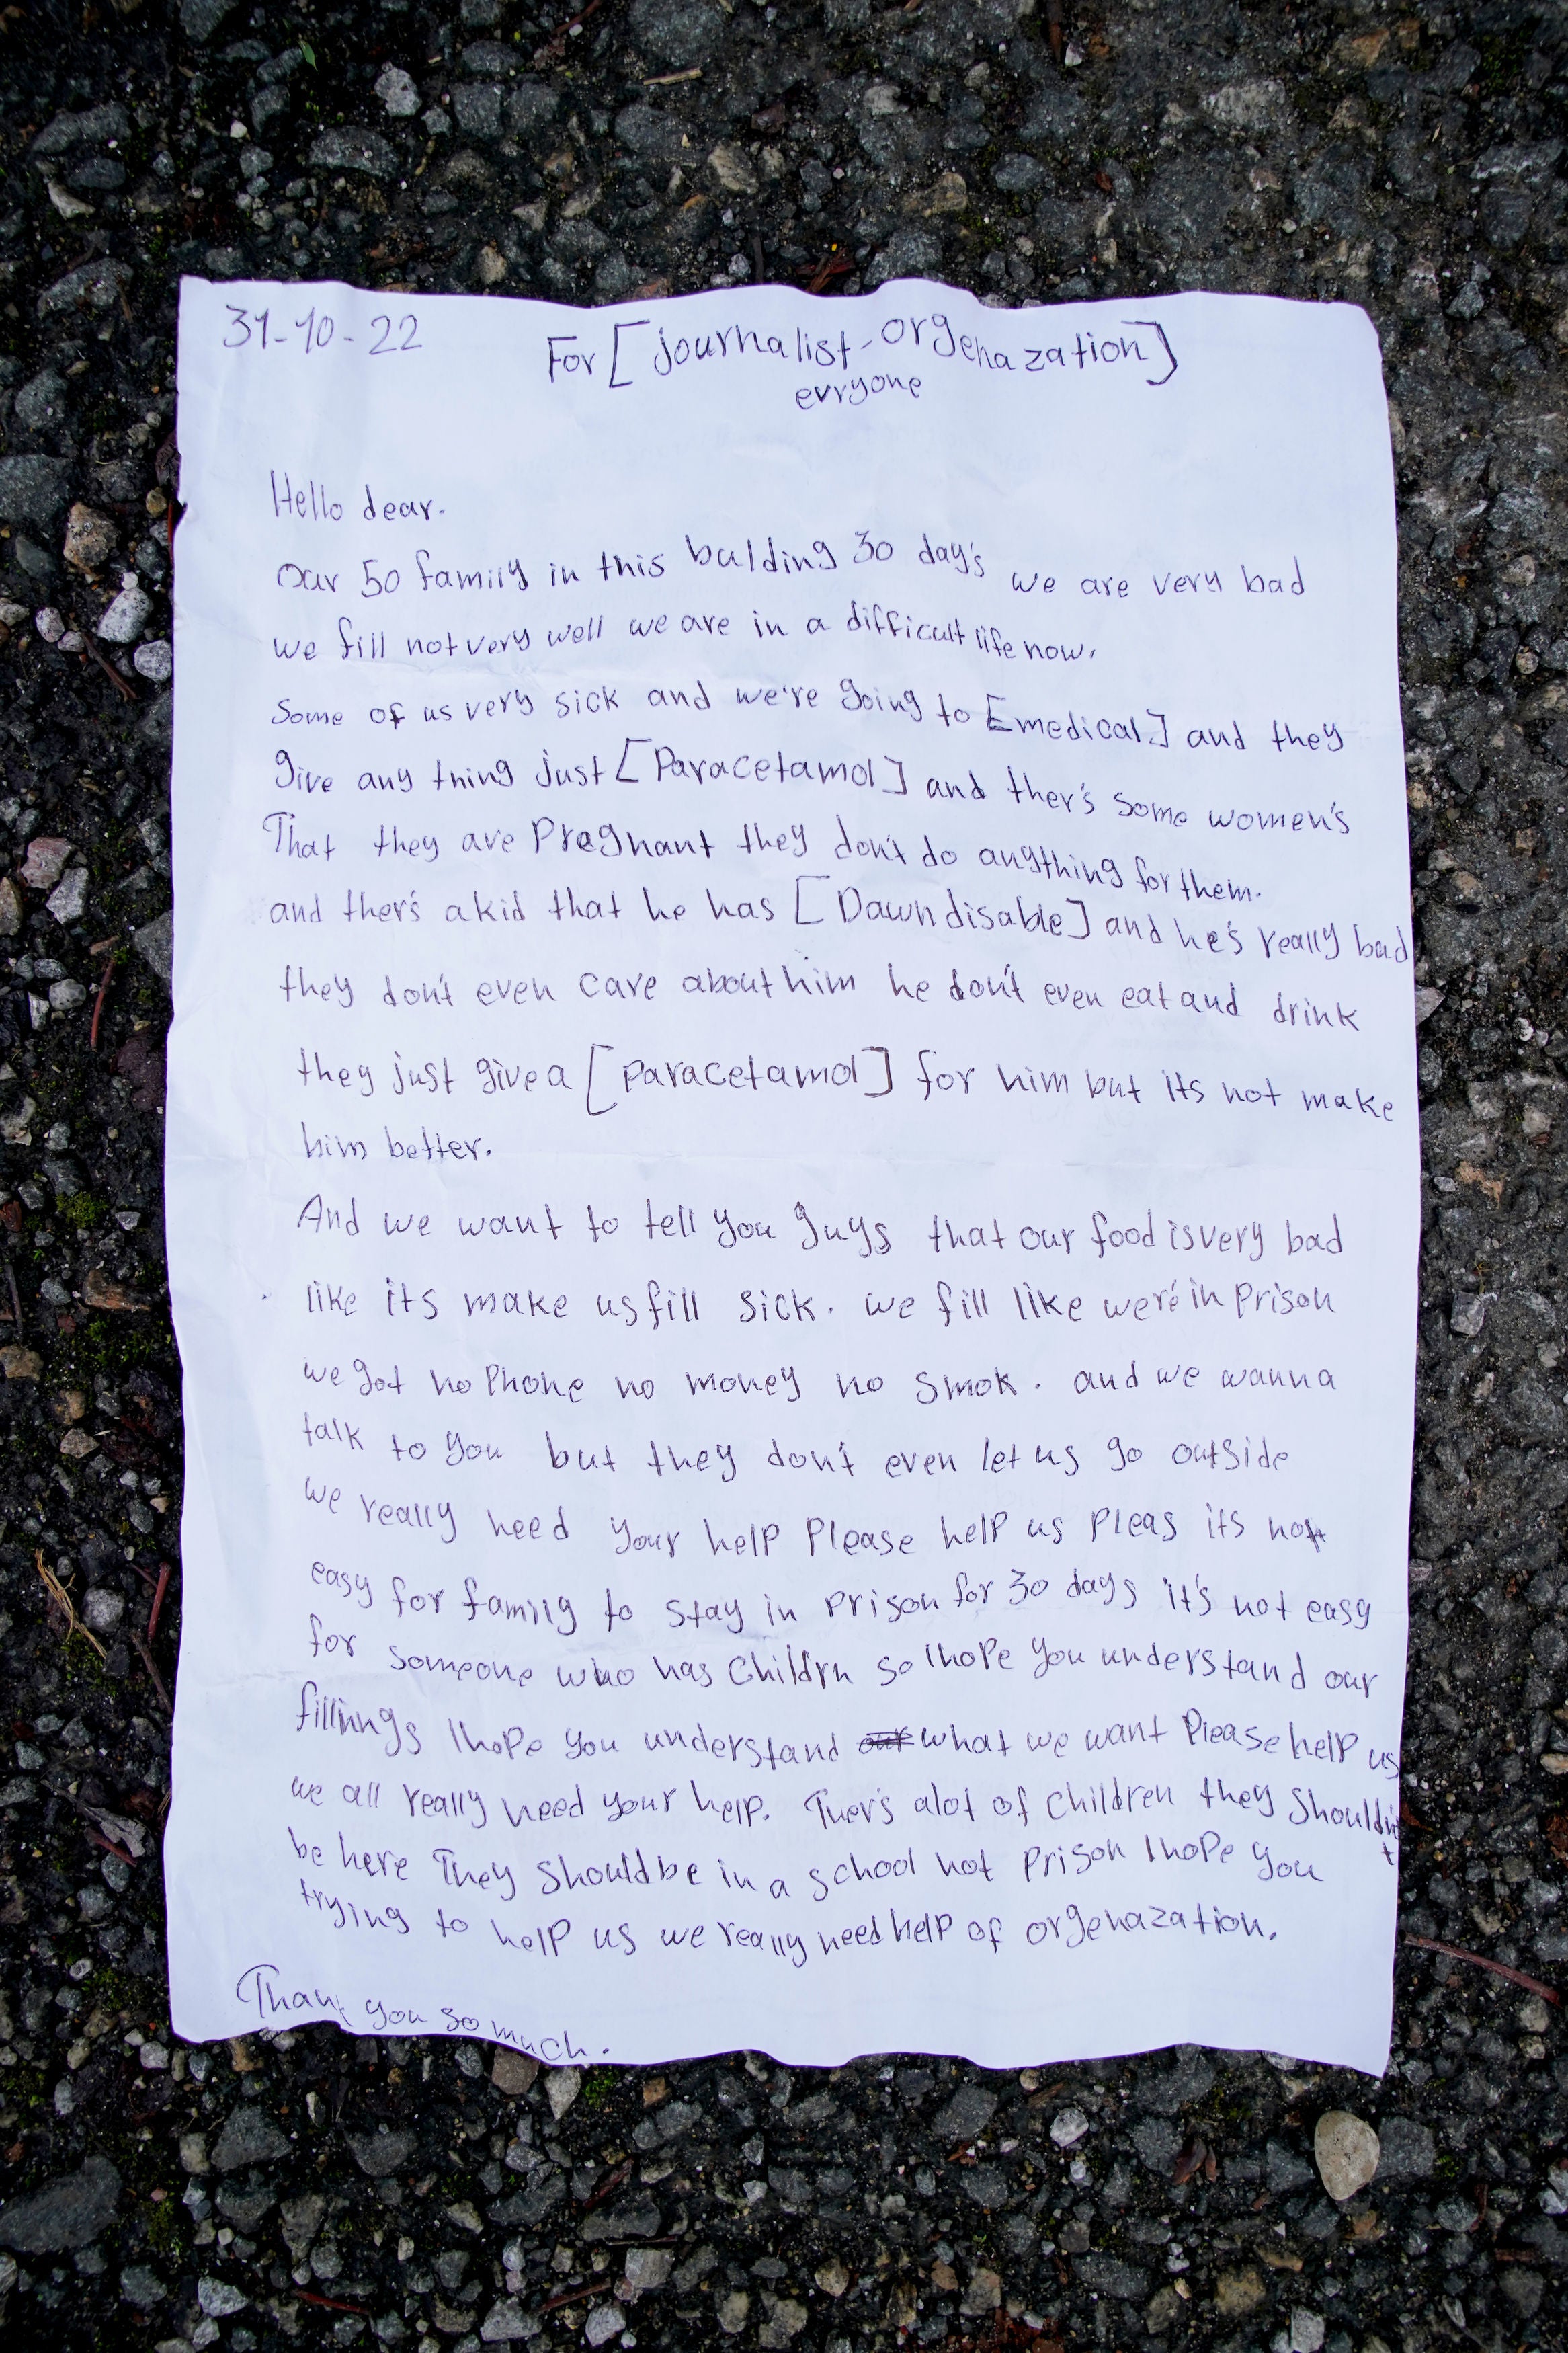 31-10-22
For [journalist-orgenazation]
evryone
Hello dear.
Our 50 family in this bulding 30 day's we are very bad
we fill not very well we are in a difficult life now.
Some of us very sick and we're going to [medical] and they
give any thing just [Paracetamol] and ther's some women's
That they are Pregnant they don't do anything for them.
and ther's a kid that he has [Dawn disable] and he's really bad
they don't even care about him he don't even eat and drink
they just give a [paracetamol] for him but its not make
him better.
And we want to tell you guys that our food is very bad
like its make us fill sick. we fill like we're in Prison
we got no Phone no money no smok. and we wanna
talk to you but they don't even let us go outside
we really need your help Please help us Pleas its not
easy for family to stay in Prison for 30 days it's not easy
for someone who has Childrn so I hope you understand our
fillinngs I hope you understand our what we want Please help us
we all really need your help. Ther's alot of Children they Shouldn't
be here They Should be in a school not Prison I hope you
trying to help us we really need help of orgenazation.
Thank you so much.